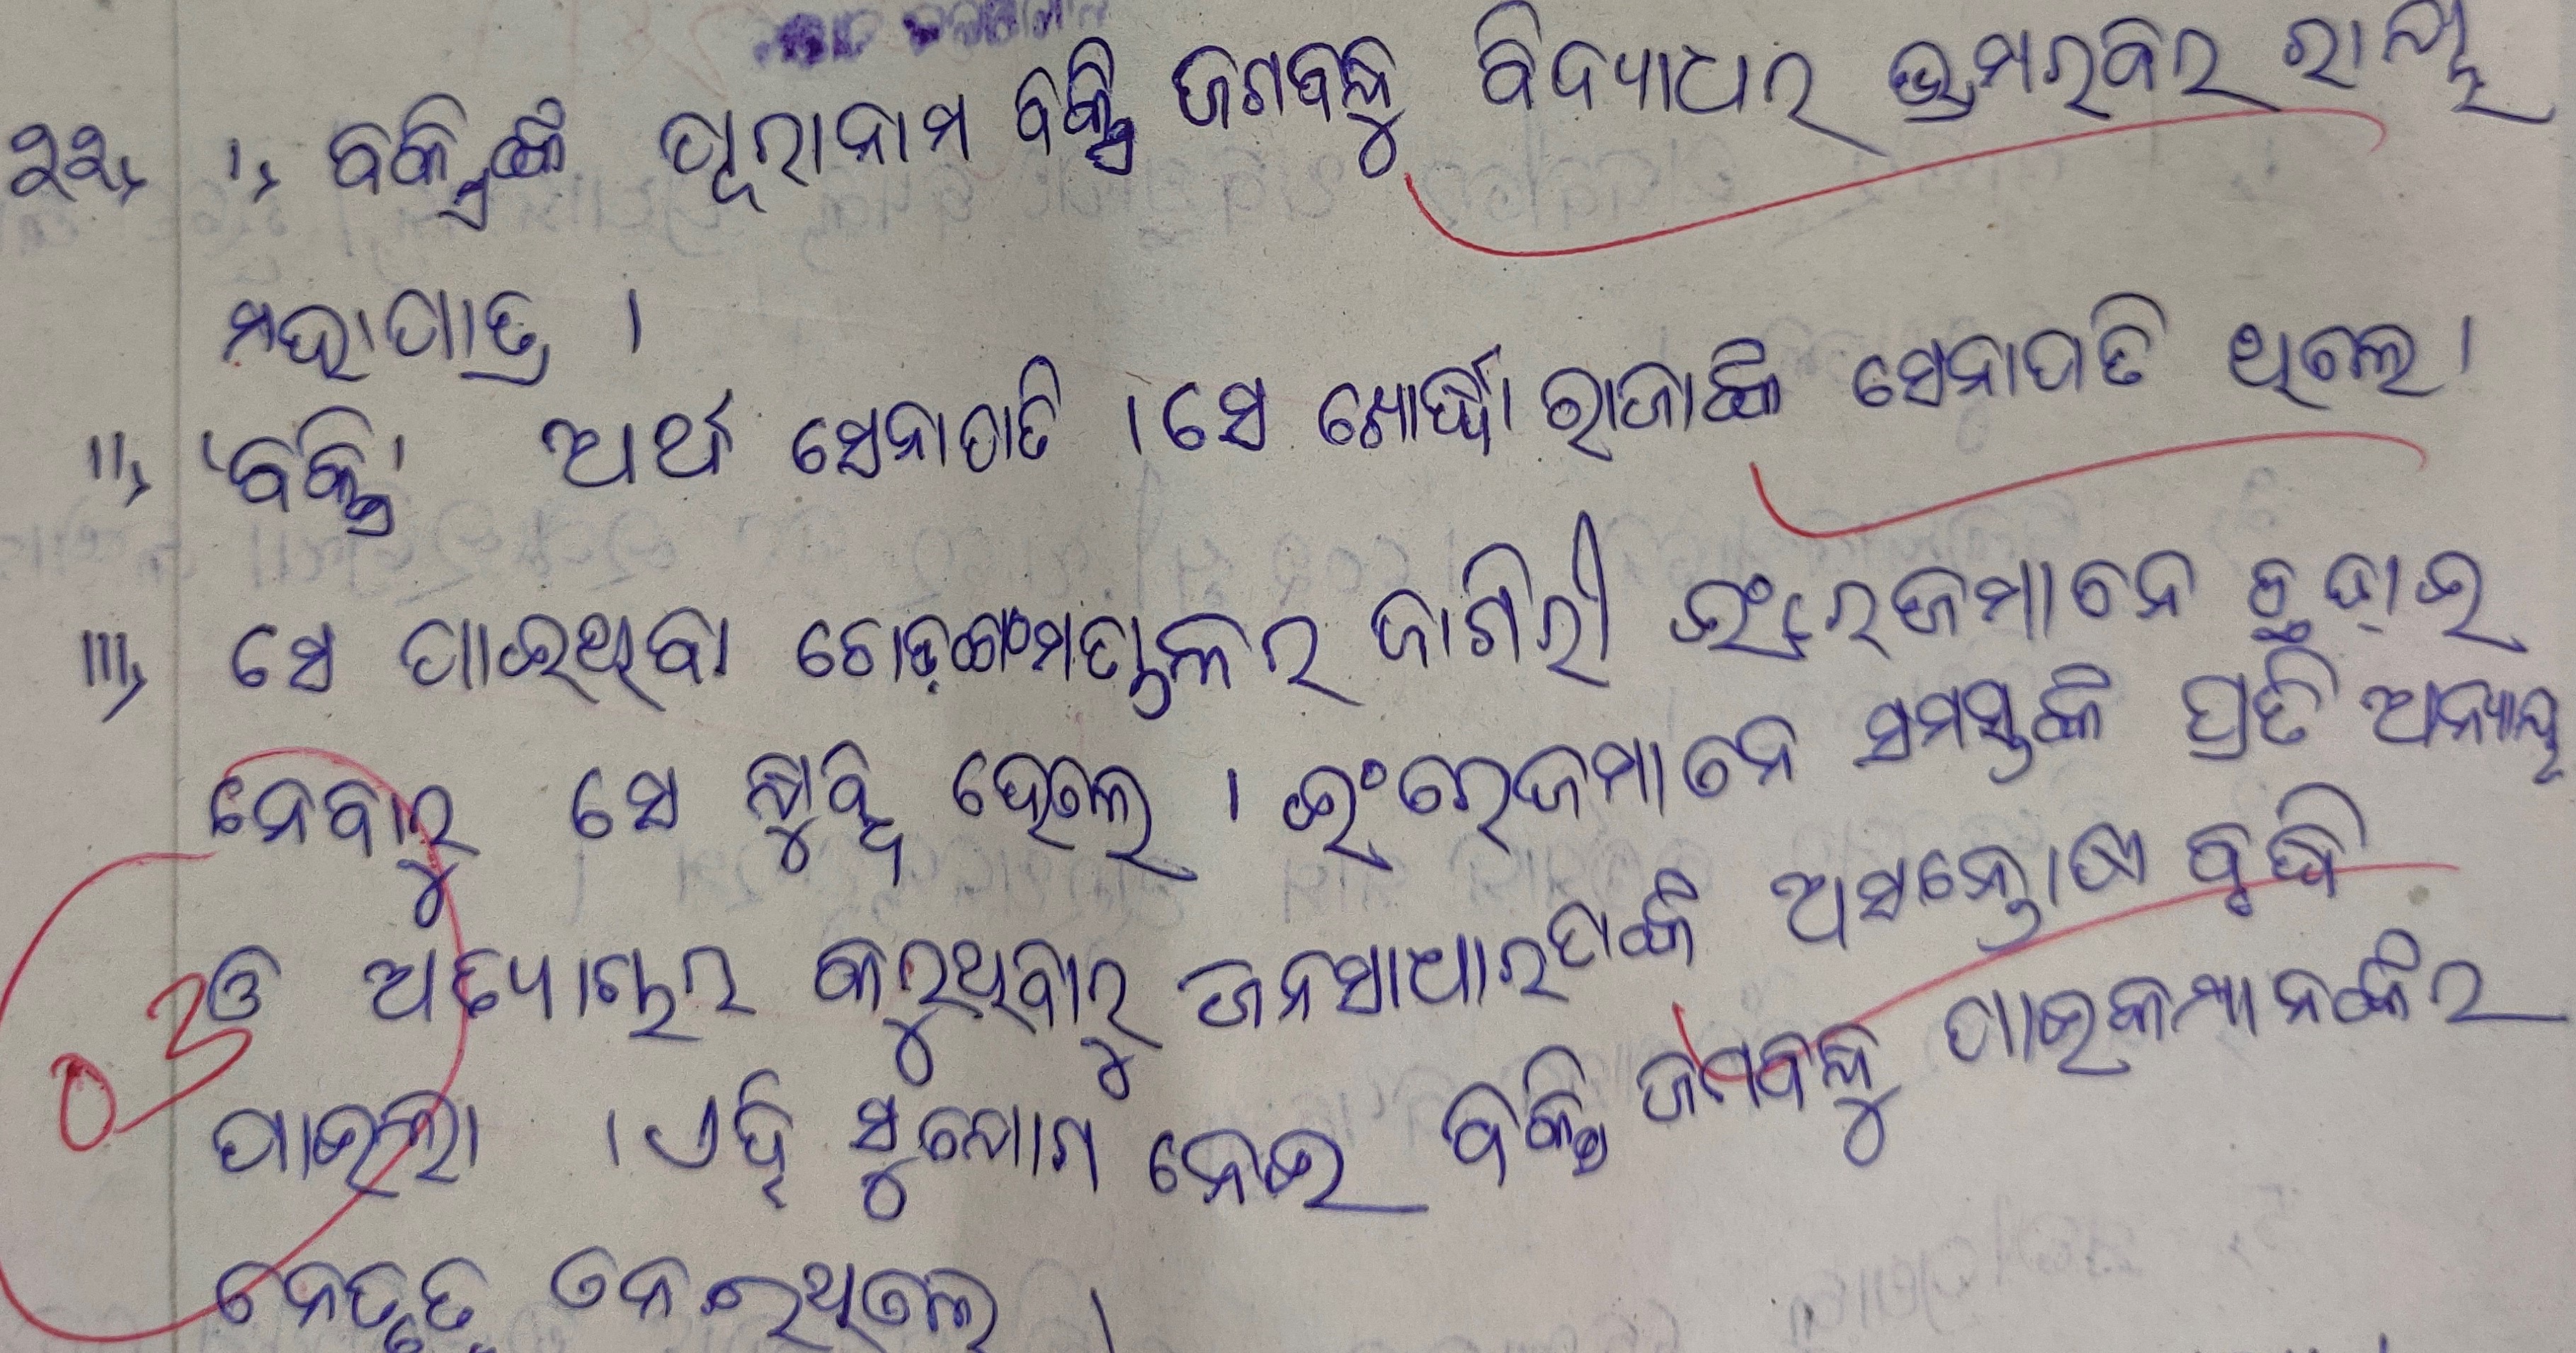 ୨୨, ୲, ବକ୍ସିଙ୍କ ପୂରାନାମ ବକ୍ସି ଜଗବନ୍ଧୁ ବିଦ୍ୟାଧର ଭ୍ରମରବର ରାୟ
ମହାପାତ୍ର ।
୲୲, 'ବକ୍ସି' ଅର୍ଥ ସେନାପତି । ସେ ଖୋର୍ଦ୍ଧା ରାଜାଙ୍କ ସେନାପତି ଥିଲେ ।
୲୲୲, ସେ ପାଇଥିବା ରୋଡ଼ଙ୍ଗମଣ୍ଡଳର ଜାଗିରୀ ଇଂରେଜମାନେ ଛଡ଼ାଇ
ନେବାରୁ ସେ କ୍ଷୁବ୍ଧ ହେଲେ । ଇଂରେଜମାନେ ସମସ୍ତଙ୍କ ପ୍ରତି ଅନ୍ୟାୟ
ଓ ଅତ୍ୟାଚାର କରୁଥିବାରୁ ଜନସାଧାରଣଙ୍କ ଅସନ୍ତୋଷ ବୃଦ୍ଧି
ପାଇଲା । ଏହି ସୁଯୋଗ ନେଇ ବକ୍ସି ଜଗବନ୍ଧୁ ପାଇକମାନଙ୍କର
ନେତୃତ୍ୱ ନେଇଥିଲେ ।
03